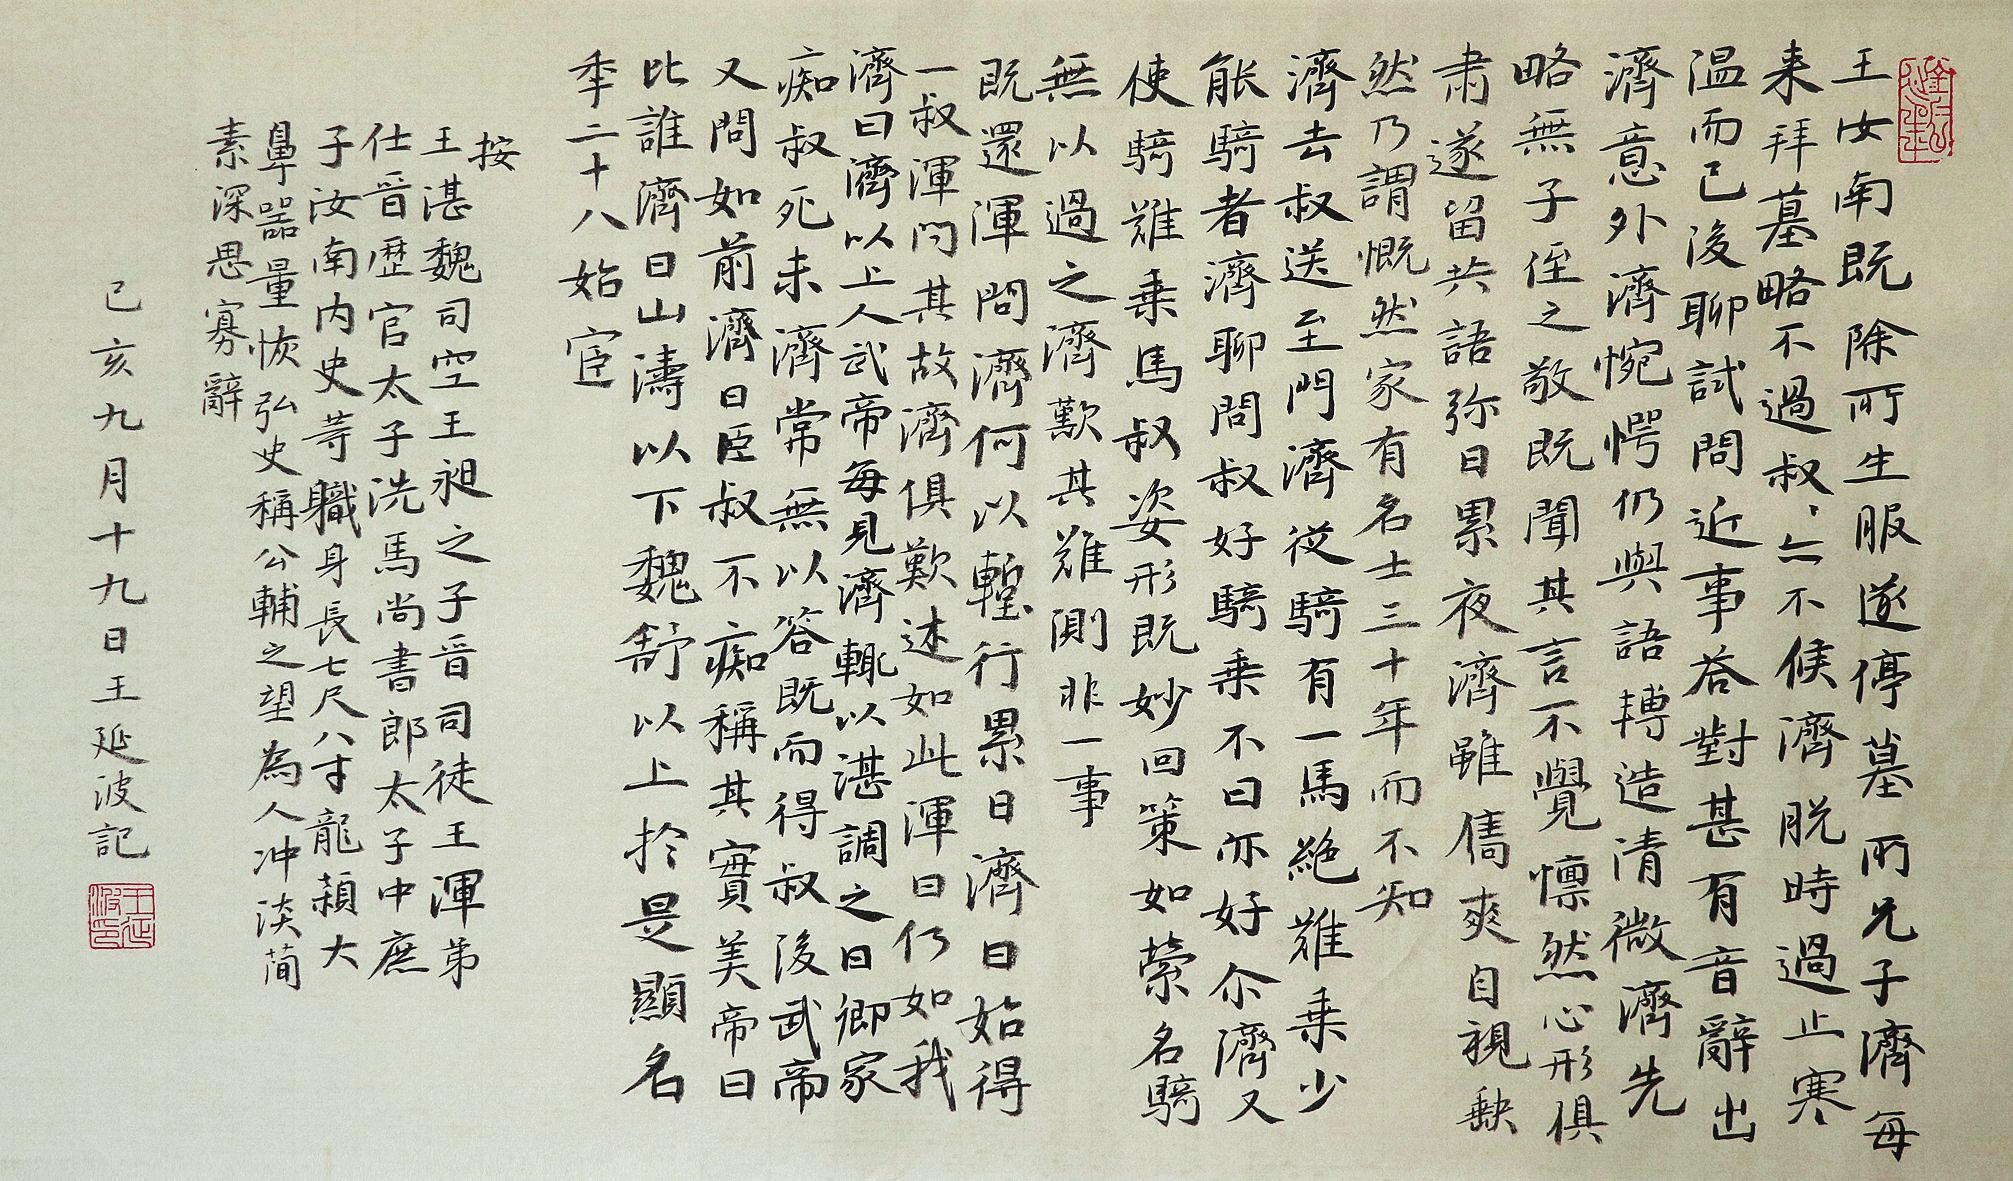 王汝南既除所生服遂停墓所兄子濟每
来拜墓略不過叔〻亦不候濟脱時過止寒
温而已後聊試問近事答對甚有音辭出
濟意外濟惋愕仍與語轉造清微濟先
略無子侄之敬既聞其言不覺懔然心形俱
肅遂留共語弥日累夜濟雖儁爽自視缺
然乃謂慨然家有名士三十年而不知
濟去叔送至門濟從騎有一馬絶難乗少
能騎者濟聊問叔好騎乗不曰亦好尒濟又
使騎難乗馬叔姿形既妙回策如縈名騎
無以過之濟歎其難測非一事
既還渾問濟何以暫行累日濟曰始得
一叔渾問其故濟俱歎述如此渾曰何如我
濟曰濟以上人武帝每見濟輒以湛調之曰卿家
痴叔死未濟常無以答既而得叔後武帝
又問如前濟曰臣叔不痴稱其實美帝曰
比誰濟曰山濤以下魏舒以上於是顯名
年二十八始宦
按
王湛魏司空王昶之子晋司徒王渾弟
仕晋歴官太子洗馬尚書郎太子中庶
子汝南内史等職身長七尺八寸龍顙大
鼻器量恢弘史稱公輔之望為人冲淡簡
素深思寡辭
己亥九月十九日王延波記
王延波印